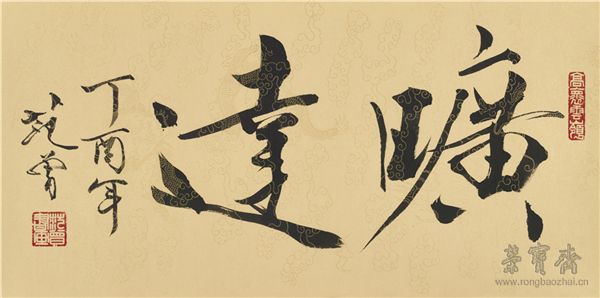 曠達
丁酉年
范曾
榮寶齋
www.rongbaozhai.cn